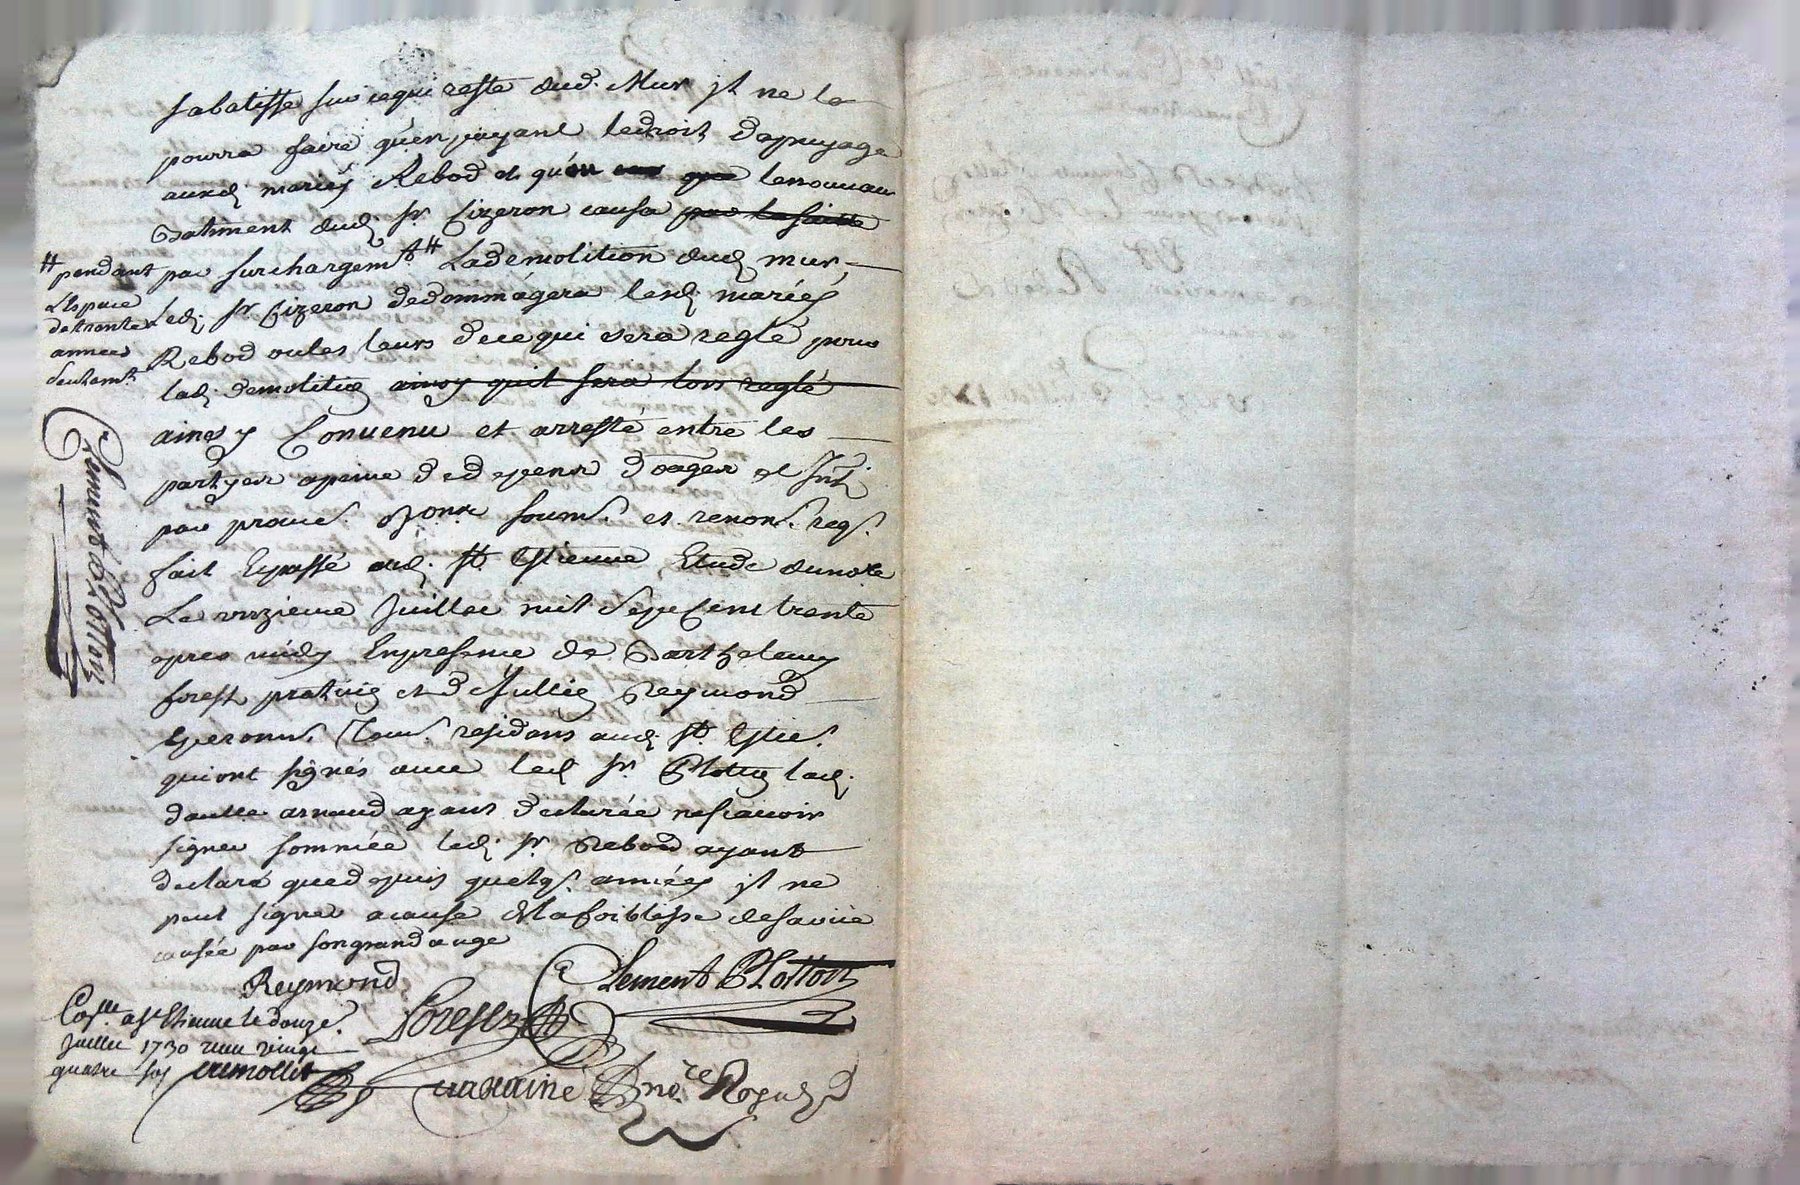 sa batisse sur ce qui reste dud. Mur il ne le
pourra faire qu'en payant le droit d'apuyage
auxd. mariés Rebod et qu'ou le nouveau
batiment dud. Sr. Cizeron causa par la suitte
par surchargemt. # La demolition dud. mur,
Led. Sr. Cizeron dedommagera lesd. mariés
Rebod ou les leurs de ce qui sera reglé pour
lad. demolition ainsy quil sera lors reglé
ainsy Convenu et arresté entre les
partyes a peine de depens domages et Int.
par promes. oblion. soums. et renon. reqs.
fait Et passé aud. St. Estienne Etude du nore
Le onzieme Juillet mil sept Cent trente
apres midy En presence de Barthelemy
forest praticien et de Jullien Reymond
Eperonnr. Tous. residans aud. St. Estie.
qui ont signés avec led. Sr. Plotton lad.
daulle arnaud ayant declarée ne scavoir
signer sommée led. Sr. Rebod ayant
declaré que depuis quelqs. années il ne
peut signer a cause de la foiblesse de sa vüe
causée par son grand auge
# pendant
L'espace
de trente
années
seulemt.
Clement Plotton
Reymond
Clement Plotton
Forest
Con.lle a St Etienne le douze.
Juillet 1730 recu vingt
quatre sols
no.re Royal